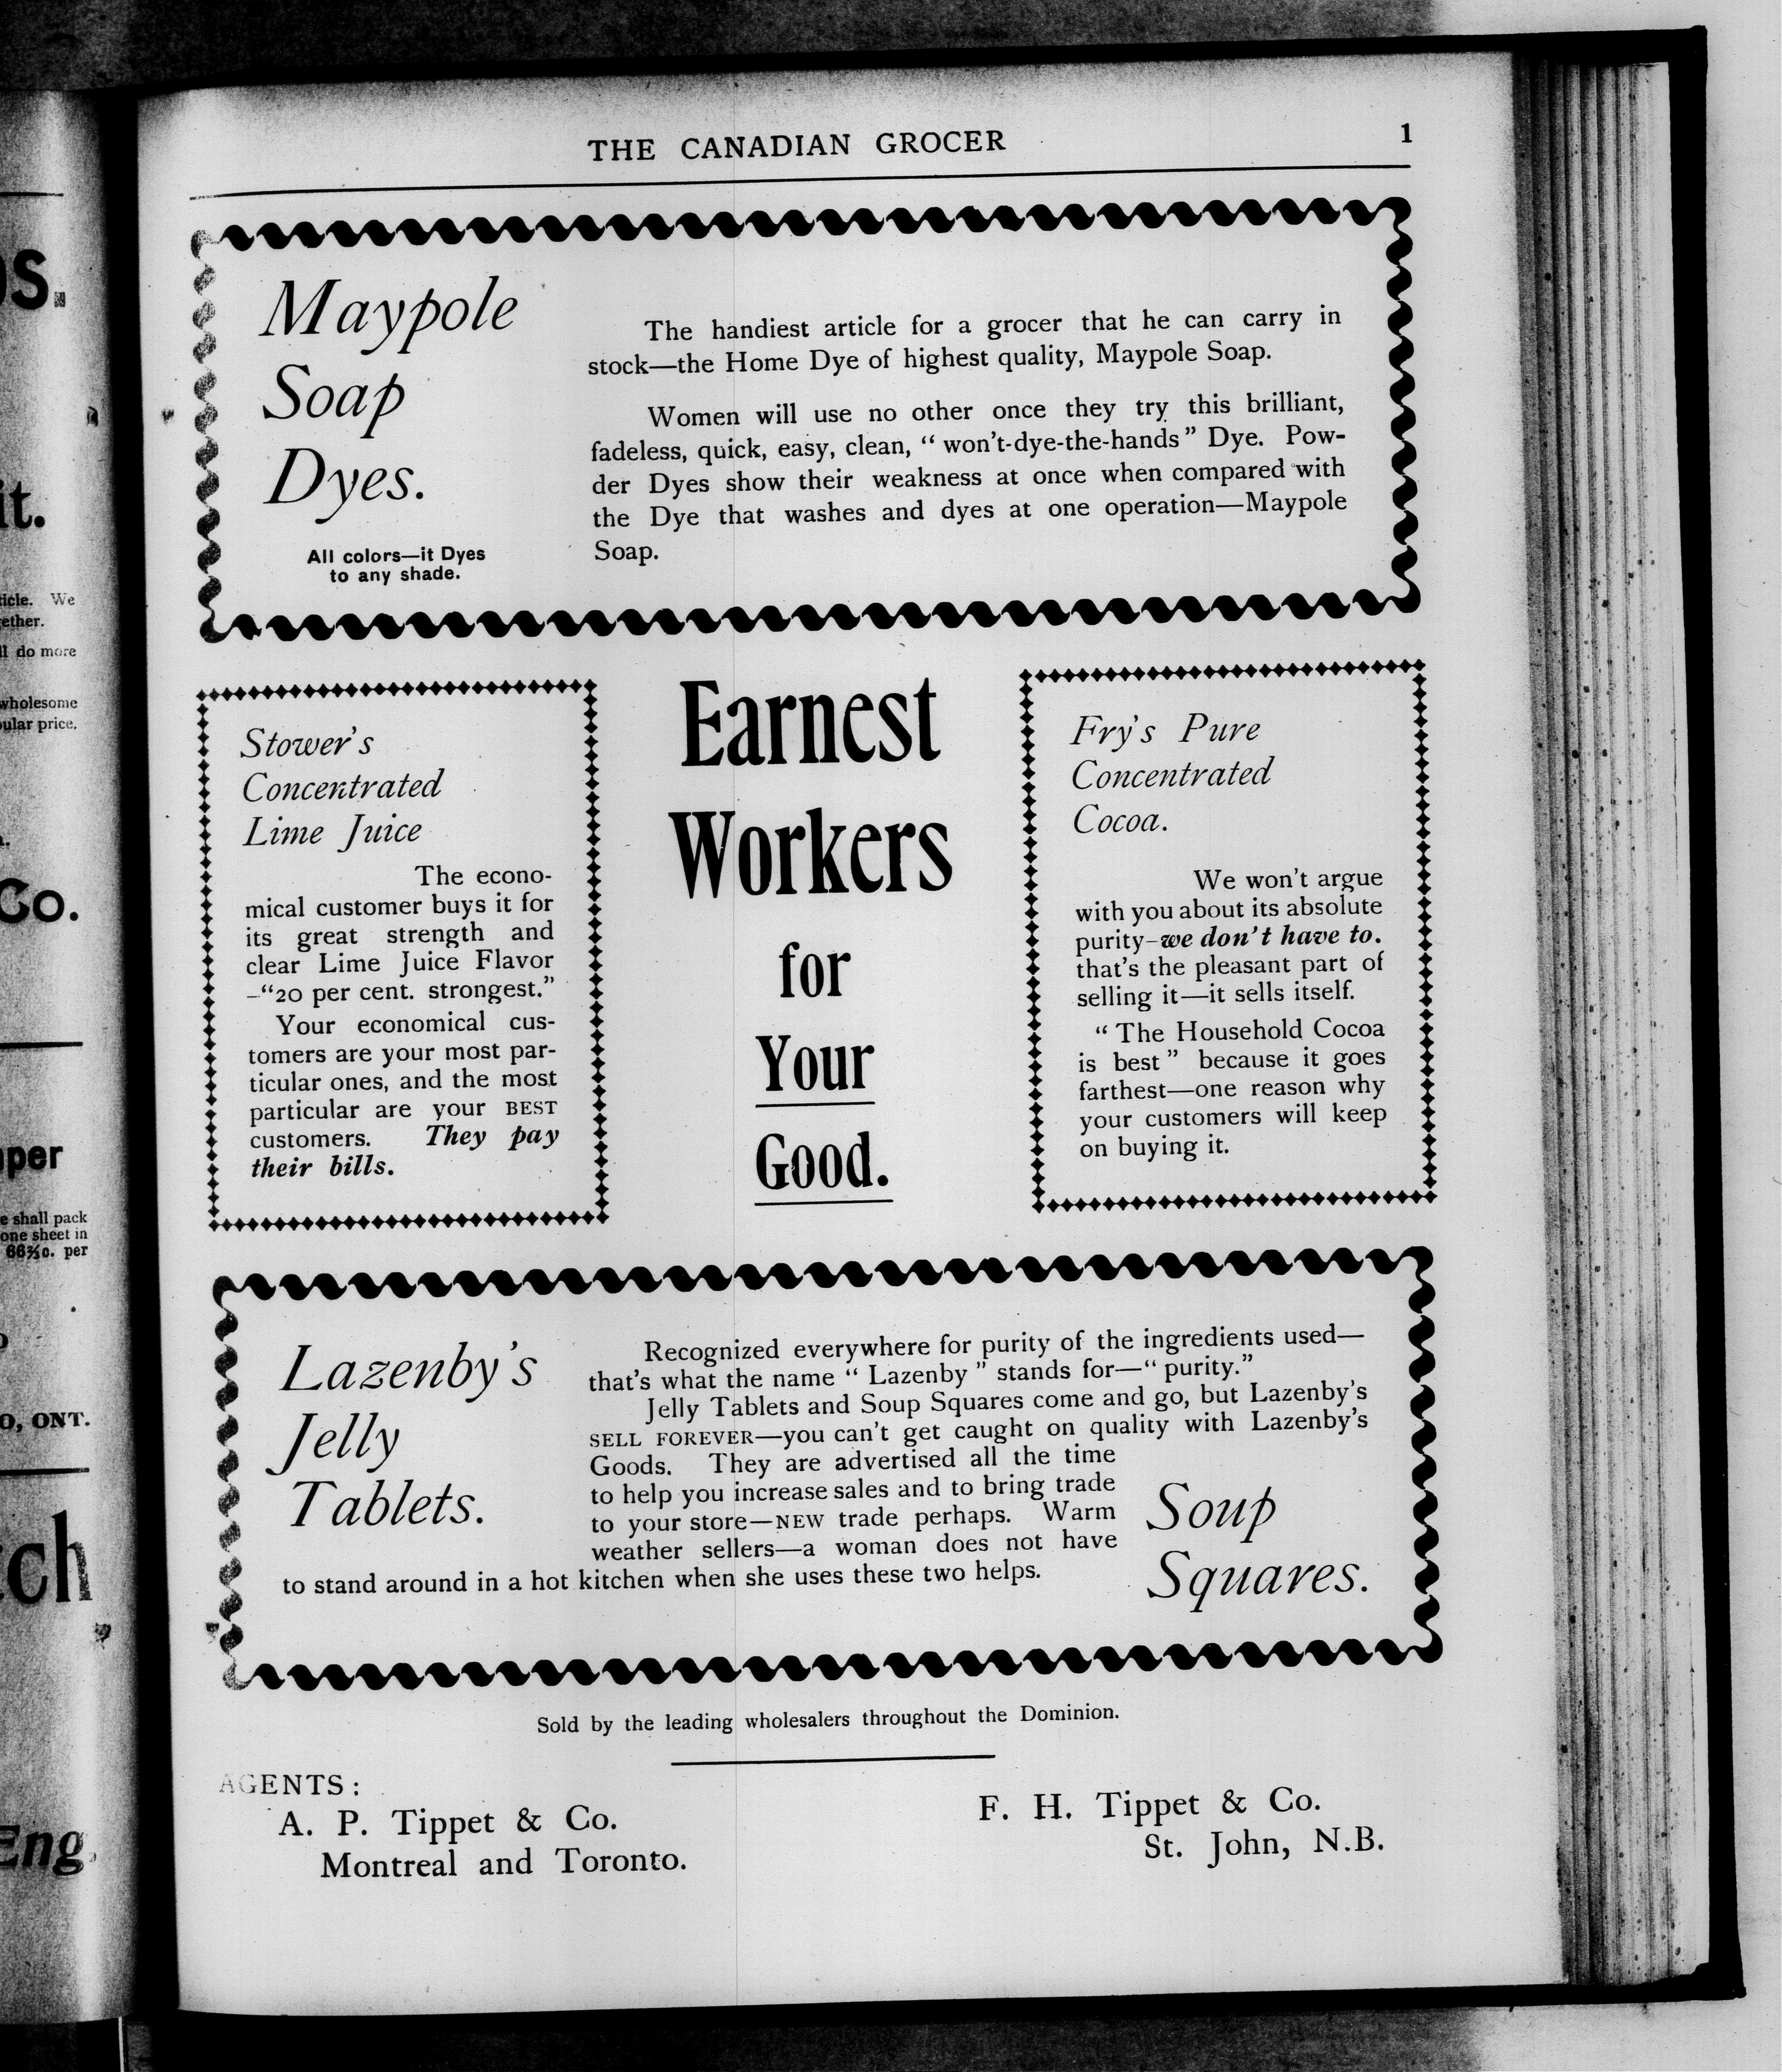 THE CANADIAN GROCER
1
Maypole
Soap
Dyes.
All colors—it Dyes
to any shade.
The handiest article for a grocer that he can carry in
stock—the Home Dye of highest quality, Maypole Soap.
Women will use no other once they try this brilliant,
fadeless, quick, easy, clean, “ won't-dye-the-hands ” Dye. Pow-
der Dyes show their weakness at once when compared with
the Dye that washes and dyes at one operation—Maypole
Soap.
Stower's
Concentrated
Lime Juice
The econo-
mical customer buys it for
its great strength and
clear Lime Juice Flavor
–“20 per cent. strongest.”
Your economical cus-
tomers are your most par-
ticular ones, and the most
particular are your BEST
customers. They pay
their bills.
Earnest
Workers
for
Your
Good.
Fry's Pure
Concentrated
Cocoa.
We won't argue
with you about its absolute
purity–we don't have to.
that's the pleasant part of
selling it—it sells itself.
“ The Household Cocoa
is best ” because it goes
farthest—one reason why
your customers will keep
on buying it.
Lazenby's
Jelly
Tablets.
Recognized everywhere for purity of the ingredients used—
that's what the name “ Lazenby ” stands for—“ purity.”
Jelly Tablets and Soup Squares come and go, but Lazenby's
SELL FOREVER—you can't get caught on quality with Lazenby's
Goods. They are advertised all the time
to help you increase sales and to bring trade
to your store—NEW trade perhaps. Warm
weather sellers—a woman does not have
to stand around in a hot kitchen when she uses these two helps.
Soup
Squares.
Sold by the leading wholesalers throughout the Dominion.
AGENTS:
A. P. Tippet & Co.
Montreal and Toronto.
F. H. Tippet & Co.
St. John, N.B.
it.
We
do more
wholesome
price.
Co.
e shall pack
one sheet in
66⅔c. per
O, ONT.
Eng.